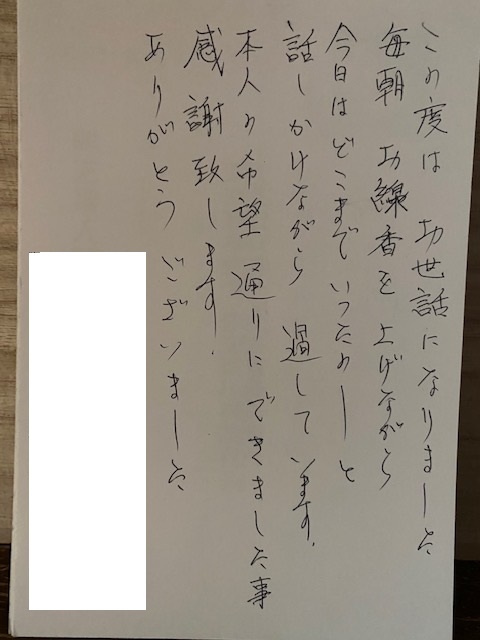 この度は お世話になりました
毎朝 お線香を上げながら
今日はどこまでいったのーと
話しかけながら 過しています.
本人の希望通りにできました事
感謝致します.
ありがとう ございました